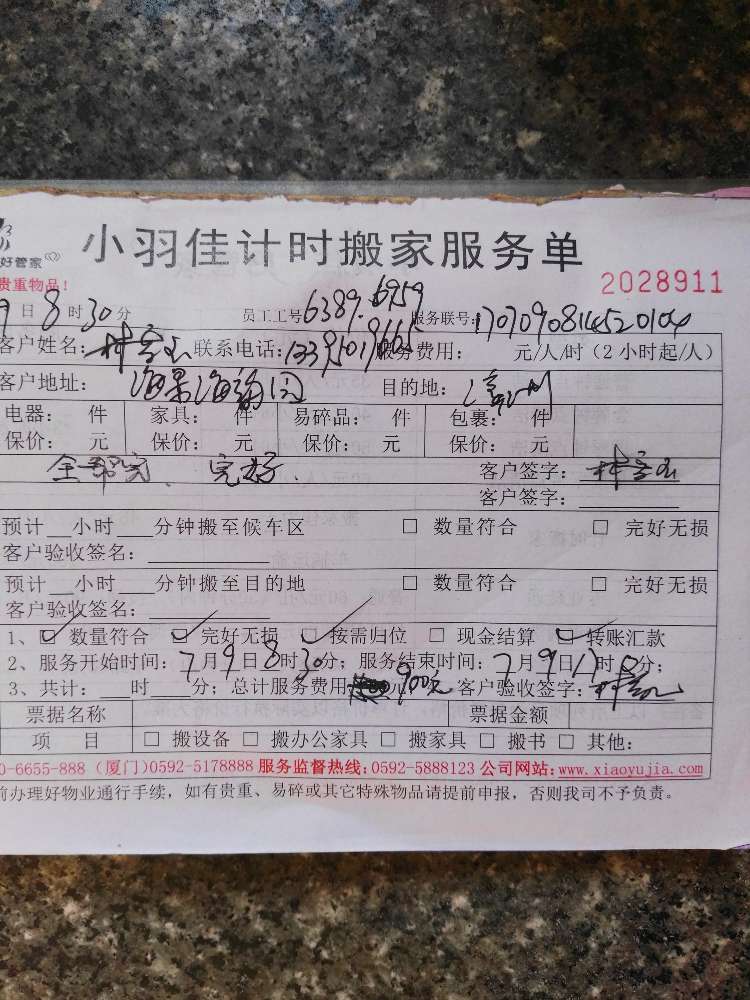 好管家
小羽佳计时搬家服务单
贵重物品！
2028911
9日8时30分 员工工号6389.6959 服务联号:170709081452010
客户姓名: 联系电话: 服务费用: 元/人/时（2小时起/人）
客户地址: 海景海 目的地: 漳州
电器: 件 家具: 件 易碎品: 件 包裹: 件
保价: 元 保价: 元 保价: 元 保价: 元
全部完、完好. 客户签字:
客户签字:
预计__小时___分钟搬至候车区 □ 数量符合 □ 完好无损
客户验收签名:
预计__小时___分钟搬至目的地 □ 数量符合 □ 完好无损
客户验收签名:
1、☑ 数量符合 ☑ 完好无损 ☑ 按需归位 □ 现金结算 ☑ 转账汇款
2、服务开始时间: 7月9日8时30分; 服务结束时间: 7月9日17时0分;
3、共计: ___时___分; 总计服务费用 900元 客户验收签字:
票据名称 票据金额
项 目 □ 搬设备 □ 搬办公家具 □ 搬家具 □ 搬书 □ 其他:
0-6655-888 (厦门)0592-5178888 服务监督热线:0592-5888123 公司网站:www.xiaoyujia.com
前办理好物业通行手续，如有贵重、易碎或其它特殊物品请提前申报，否则我司不予负责。